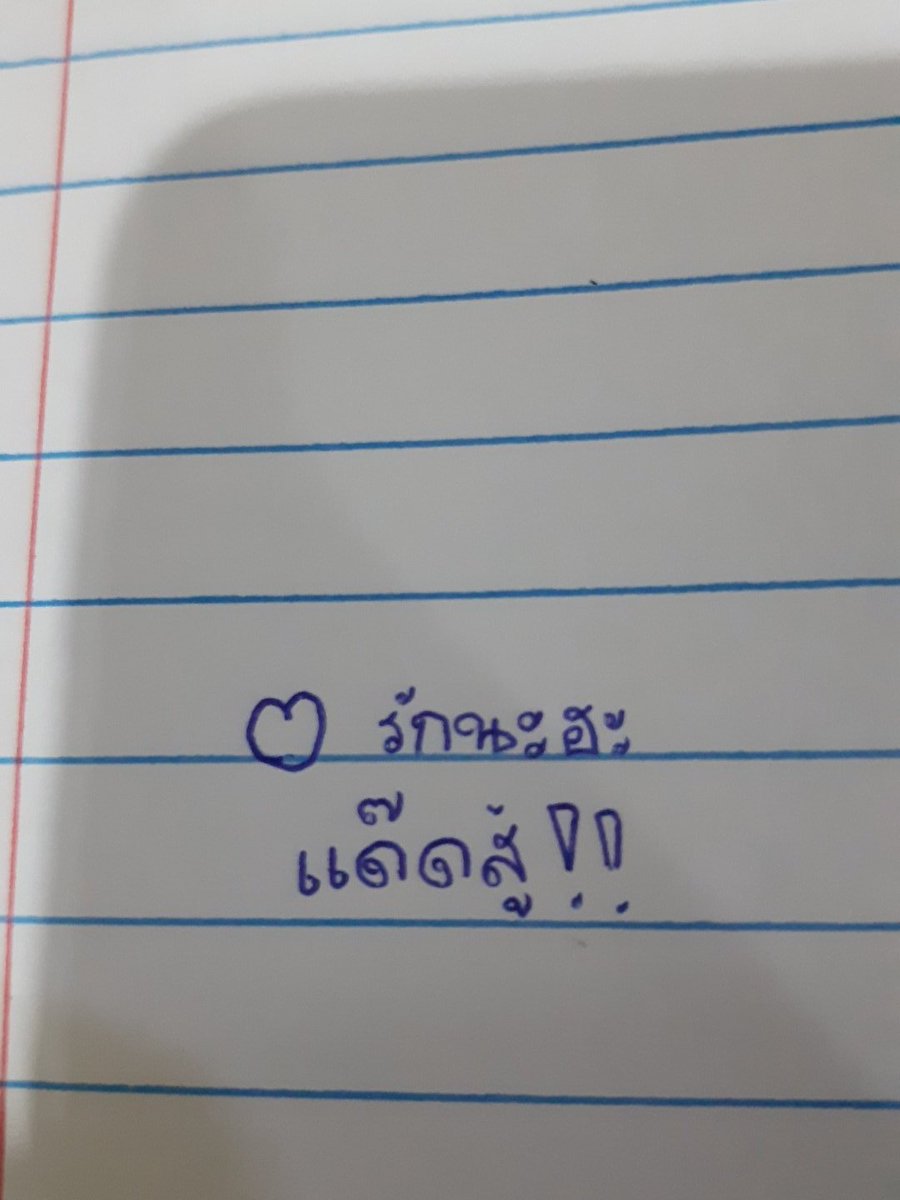 ♡ รักนะฮะ
แด๊ดสู้!!